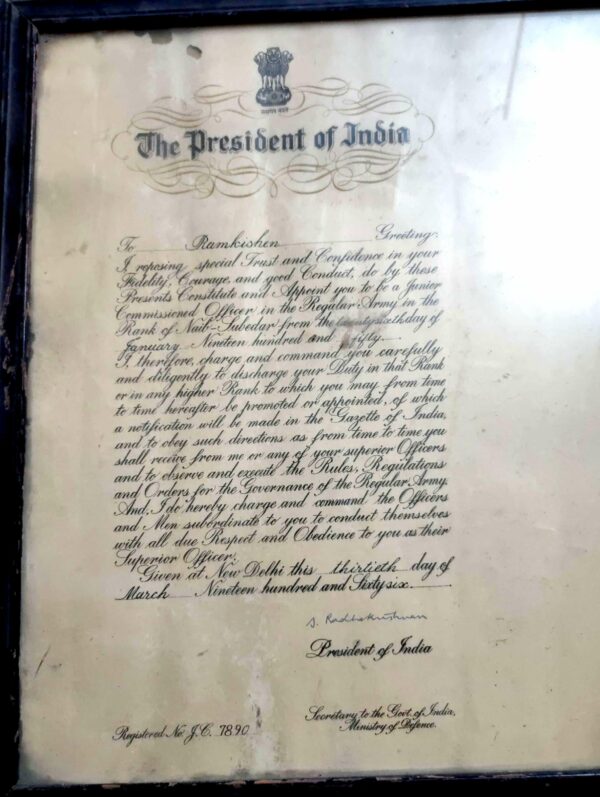 The President of India
To, Ramkishen Greeting:
I, reposing special Trust and Confidence in your
Fidelity, Courage, and good Conduct, do by these
Presents Constitute and Appoint you to be a Junior
Commissioned Officer in the Regular Army in the
Rank of Naib-Subedar from the twentysixth day of
January Nineteen hundred and fifty
I, therefore, charge and command you carefully
and diligently to discharge your Duty in that Rank
or in any higher Rank to which you may from time
to time hereafter be promoted or appointed, of which
a notification will be made in the Gazette of India,
and to obey such directions as from time to time you
shall receive from me or any of your superior Officers
and to observe and execute the Rules, Regulations
and Orders for the Governance of the Regular Army.
And, I do hereby charge and command the Officers
and Men subordinate to you to conduct themselves
with all due Respect and Obedience to you as their
Superior Officer.
Given at New Delhi this thirtieth day of
March Nineteen hundred and Sixty six.
S. Radhakrishnan
President of India
Secretary to the Govt. of India,
Ministry of Defence.
Registered No. J.C. 7890